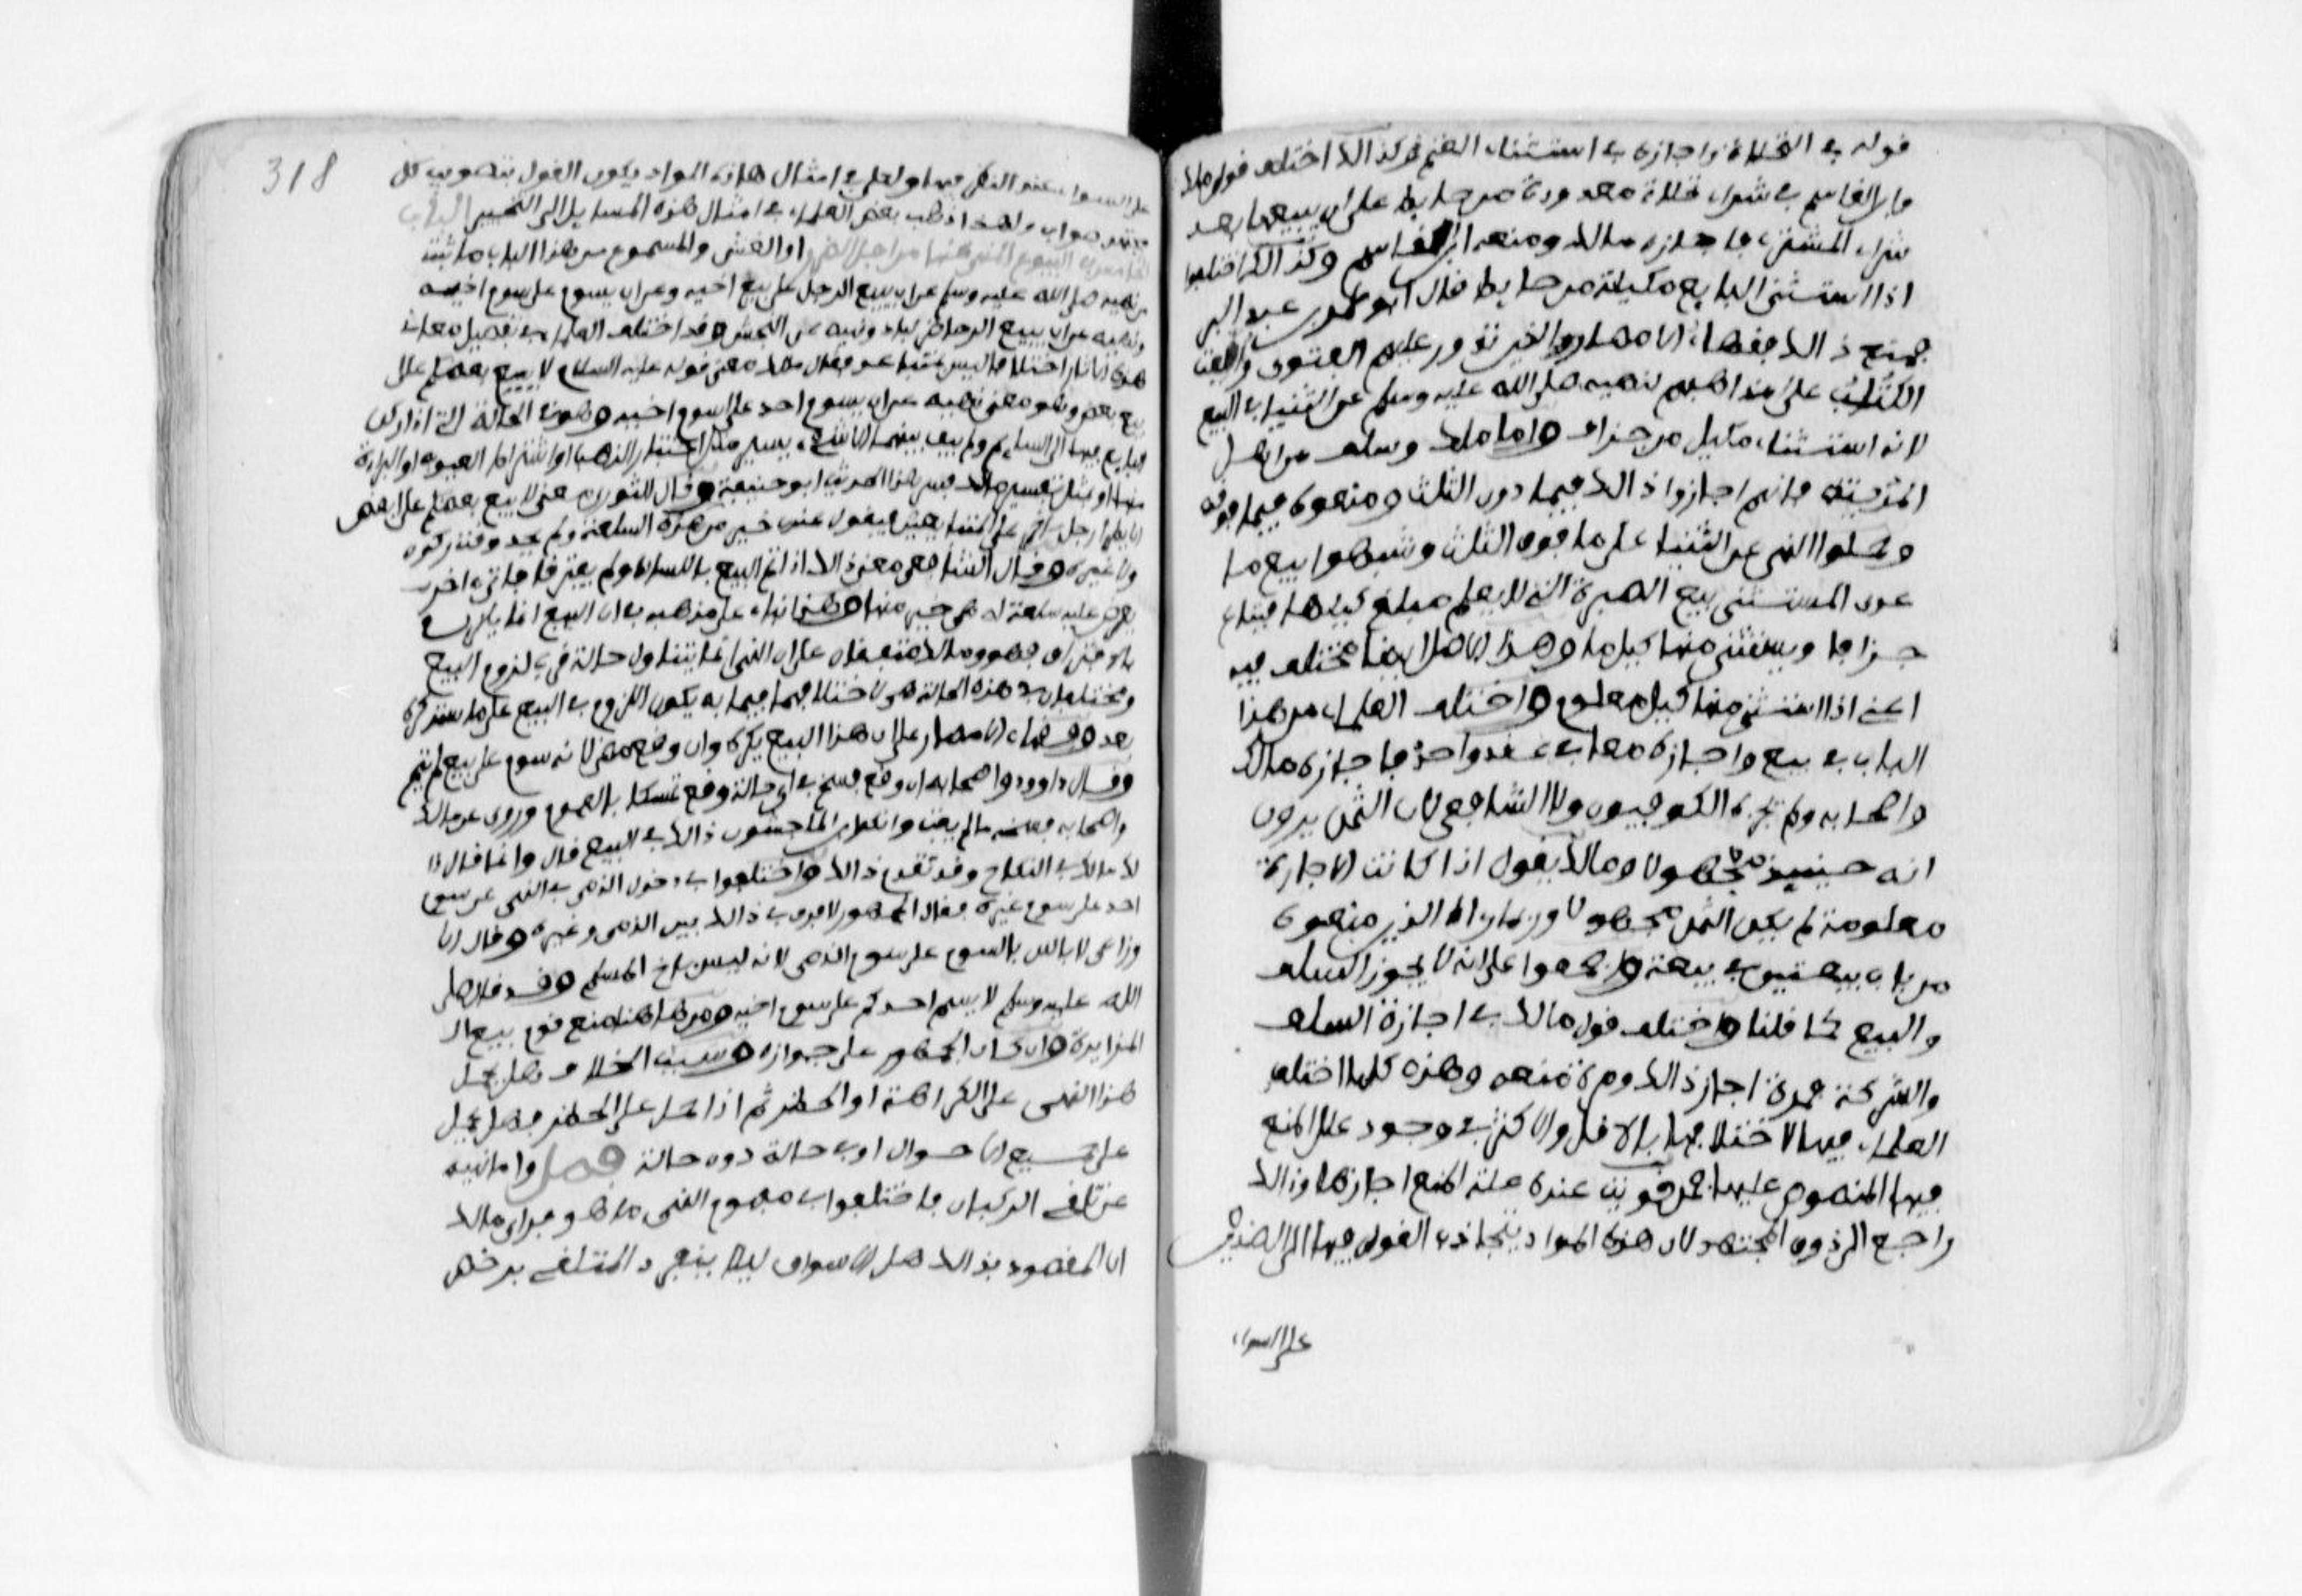 قوله في النخلات واجازه في استثناء الغنم وكذالك اختلف قول مالك
وابن القاسم في شراء نخلات معدودة من حايط على ان يبيعها بعد
شراء المشتري فاجازه مالك ومنعه ابن القاسم وكذالك اختلفوا
اذا استثنى البايع مكيلة من حايط قال ابو عمر بن عبد البر
فمنع ذالك فقهاء الامصار الذين تدور عليهم الفتوى والفت
الكتب على مذاهبهم لنهيه صلى الله عليه وسلم عن الثنيا في البيع
لانه استثناء مكيل من جزاف واما مالك وسلفه من اهل
المدينة فانهم اجازوا ذالك فيما دون الثلث ومنعوه فيما فوقه
وحملوا النهي عن الثنيا على ما فوق الثلث وشبهوا بيع ما
عدى المستثنى ببيع الصبرة التي لا يعلم مبلغ كيلها فتباع
جزافا ويستثنى منها كيل ما وهذا الاصل ايضا مختلف فيه
اعني اذا استثنى منها كيل معلوم واختلف العلماء من هذا
الباب في بيع واجارة معا في عقد واحد فاجازه مالك
واصحابه ولم يجزه الكوفيون ولا الشافعي لان الثمن يرون
انه حينيذ مجهولا ومالك يقول اذا كانت الاجارة
معلومة لم يكن الثمن مجهولا وربما راه الذين منعوه
من باب بيعتين في بيعة واجمعوا على انه لا يجوز السلف
والبيع كما قلنا واختلف قول مالك في اجازة السلف
والشركة فمرة اجاز ذالك ومرة منعه وهذه كلها اختلف
العلماء فيها لاختلافها بالاقل والاكثر في وجود علل المنع
فيها المنصوص عليها فمن قويت عنده علة المنع اجازها وذالك
راجع الى ذوق المجتهد لان هذه المواد يتجاذب القول فيها الى الضدين
على السواء
318
على السواء عند النظر فيها ولعل في امثال هاذه المواد يكون القول بتصويب كل
مجتهد صواب ولهذا ذهب بعض العلماء في امثال هذه المسايل الى التخيير الباب
من البيوع المنهي عنها من اجل الضرر او الغش والمسموع من هذا الباب ما ثبت
من نهيه صلى الله عليه وسلم عن ان يبيع الرجل على بيع اخيه وعن ان يسوم على سوم اخيه
ونهيه عن ان يبيع الحاضر لباد ونهيه عن النجش وقد اختلف العلماء في تفصيل معاني
هذه الاثار اختلافا ليس بمتباعد فقال مالك معنى قوله عليه السلام لا يبيع بعضكم على
بيع بعض وهو معنى نهيه عن ان يسوم احد على سوم اخيه وهو في الحالة التي اذا ركن
البايع فيها الى السايم ولم يبق بينهما الا شيء يسير مثل اختيار الذهب او اشتراط العيوب او البراءة
منها وبمثل تفسير مالك فسر هذا الحديث ابو حنيفة وقال الثوري معنى لا يبيع بعضكم على بعض
لا يطرا رجل اخر على المتبايعين فيقول عندي خير من هذه السلعة ولم يحد وقت ركون
ولا غيره وقال الشافعي معنى ذالك اذا تم البيع باللسان ولم يفترقا فاتى اخر
يعرض عليه سلعة له هي خير منها وهذا بناء على مذهبه في ان البيع انما يلزم
بالافتراق فهو ومالك متفقان على ان النهي انما يتناول حالة قرب لزوم البيع
ومختلفان في هذه الحالة هي لاختلافهما فيما به يكون اللزوم في البيع على ما سنذكره
بعد وفقهاء الامصار على ان هذا البيع يكره وان وقع مضى لانه سوم على بيع لم يتم
وقال داوود واصحابه ان وقع فسخ في اي حالة وقع تمسكا بالعموم وروي عن مالك
واصحابه فسخه ما لم يفت وانكر ابن الماجشون ذالك في البيع فقال وانما قال ذا
لك مالك في النكاح وقد تقدم ذالك واختلفوا في دخول الذمي في النهي عن سوم
احد على سوم غيره فقال الجمهور لا فرق في ذالك بين الذمي وغيره وقال الا
وزاعي لا باس بالسوم على سوم الذمي لانه ليس باخ المسلم وقد قال صلى
الله عليه وسلم لا يسم احدكم على سوم اخيه ومن هاهنا منع قوم بيع الـ
المزايدة وان كان الجمهور على جوازه وسبب الخلاف هل يحمل
هذا النهي على الكراهة او الحظر ثم اذا حمل على الحظر فهل يحمل
على جميع الاحوال او في حالة دون حالة فصل واما نهيه
عن تلقي الركبان فاختلفوا في مفهوم النهي ما هو فراى مالك
ان المقصود بذالك اهل الاسواق ليلا ينفرد المتلقي برخص